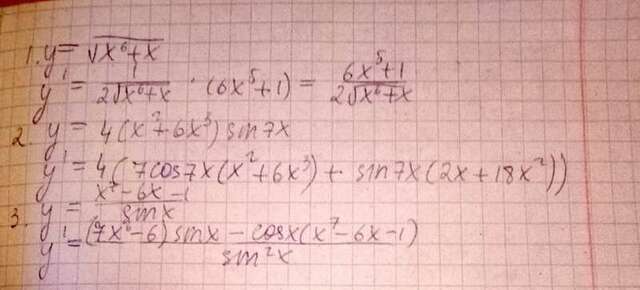 1. y = √(x⁶+x)
y' = 1/(2√(x⁶+x)) · (6x⁵+1) = (6x⁵+1)/(2√(x⁶+x))
2. y = 4(x²+6x³)sin7x
y' = 4(7cos7x(x²+6x³) + sin7x(2x+18x²))
3. y = (x⁷-6x-1)/sinx
y' = ((7x⁶-6)sinx - cosx(x⁷-6x-1))/sin²x